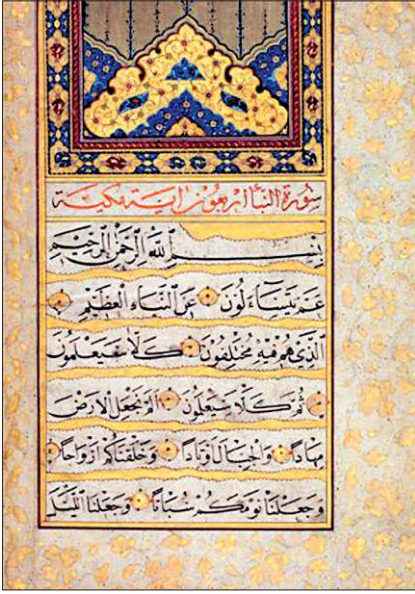 سورة النبأ اربعون اية مكية
بِسْمِ اللهِ الرَّحْمٰنِ الرَّحِيمِ
عَمَّ يَتَسَاءَلُونَ عَنِ النَّبَاءِ الْعَظِيمِ
الَّذِي هُمْ فِيهِ مُخْتَلِفُونَ كَلَّا سَيَعْلَمُونَ
ثُمَّ كَلَّا سَيَعْلَمُونَ اَلَمْ نَجْعَلِ الْاَرْضَ
مِهَادًا وَالْجِبَالَ اَوْتَادًا وَخَلَقْنَاكُمْ اَزْوَاجًا
وَجَعَلْنَا نَوْمَكُمْ سُبَاتًا وَجَعَلْنَا اللَّيْلَ